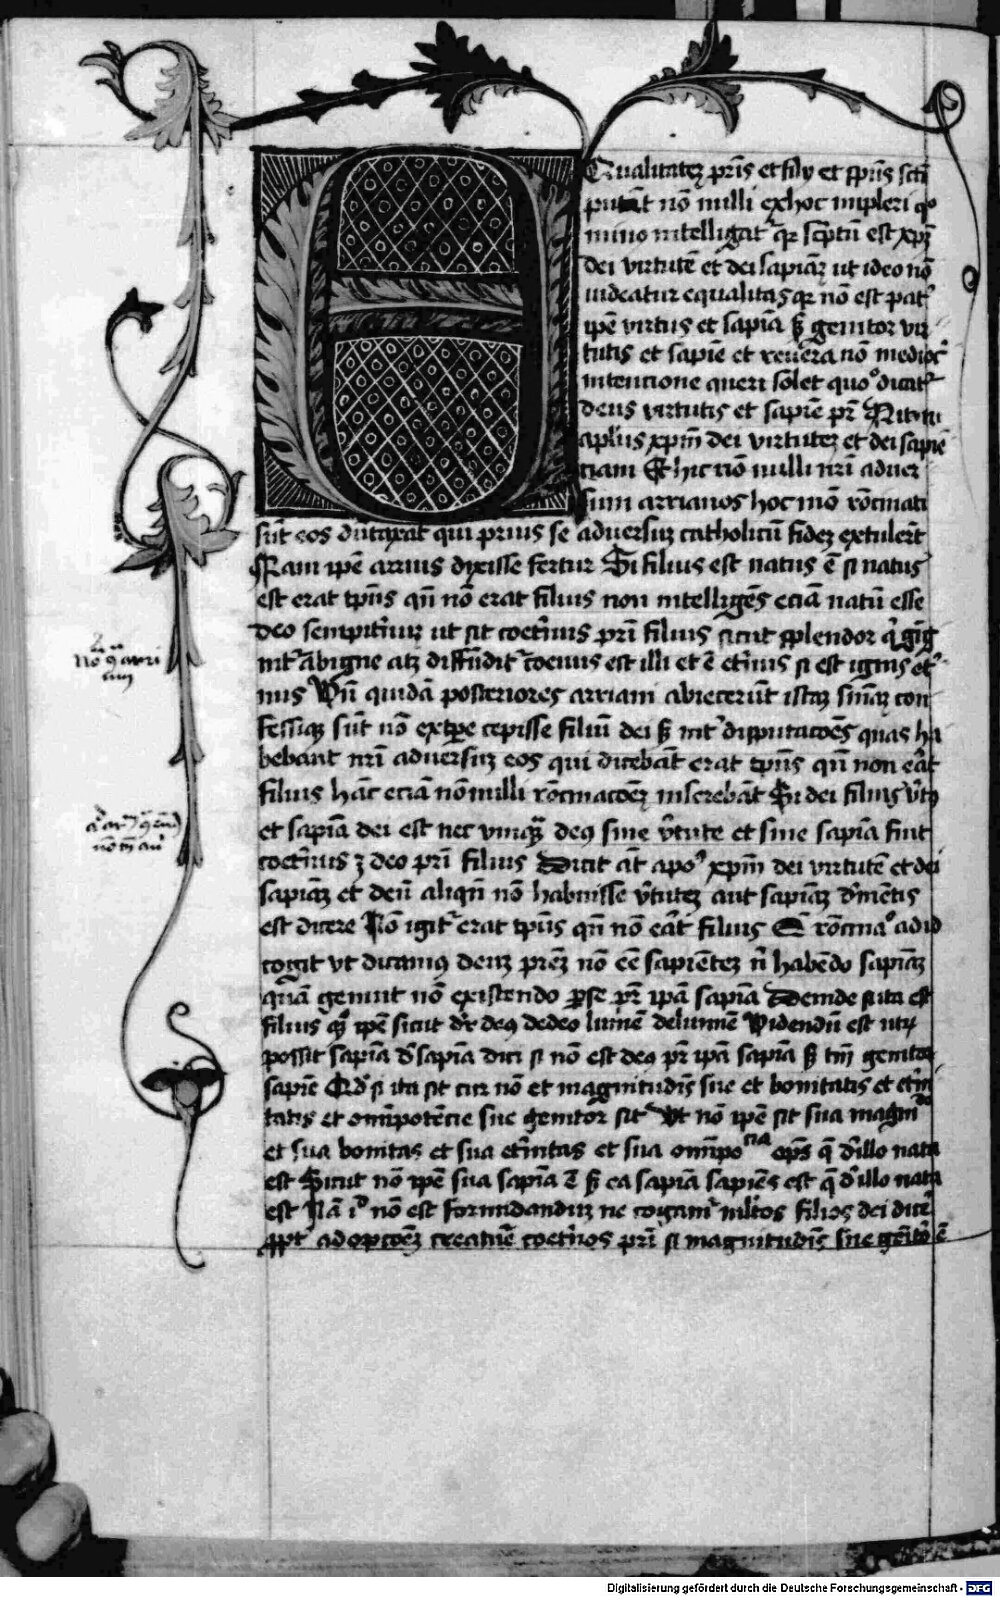 Equalitatez pr̄is et filij et sp̄us sctī
putāt nō nulli ex hoc impleri quo
minus intelligat᷑ qr sc̄ptū est xp̄z
dei virtutē et dei sapiāz ut ideo nō
uideatur equalitas qr nō est pat᷑
ip̄e virtus et sapīa sꝫ genitor vir
tutis et sapiē et reuera nō medioc᷑
intencione queri solet quoͦ dicat᷑
deus virtutis et sapiē pr̄ Ait .n.
aplūs xp̄m dei virtutez et dei sapiē
ciam Et hic nō nulli nr̄i aduer
sum arrianos hoc mō rōcinati
sūt eos dūtaxat qui prius se aduersuz catholicū fidez extulerūt
Nam ip̄e arrius dixisse fertur Si filius est natus ē si natus
est erat tp̄us qn̄ nō erat filius non intelligēs eciā natū esse
deo sempit᷑nuz ut sit coet᷑nus pr̄i filius sicut splendor qͥ gig
nit᷑ ab igne atqꝫ diffūdit᷑ coeuus est illi et ēt et᷑nus si est ignis et᷑
nus Vn̄ quidā posteriores arriani abiecerūt istaz sn̄iaz con
fessiqꝫ sūt nō ex tp̄e cepisse filiū dei sꝫ int᷑ disputacōēs quas ha
bebant nr̄i aduersuz eos qui dicebāt erat tp̄us qn̄ non erat
filius hāc eciā nōnulli rōcinacōēz inserebāt Si dei filius v᷑tꝰ
et sapīa dei est nec vnqꝫ deꝰ sine v᷑tute et sine sapīa fuit
coet᷑nus ē deo pr̄i filius Dicit āt apoͦ xp̄m dei virtutē et dei
sapiāz et deū aliqn̄ nō habuisse v᷑tutez aut sapiāz dementis
est dicere Nō igit᷑ erat tp̄us qn̄ nō erāt filius Et rōcinaͦ ad id
cogit vt dicamꝰ deuz prēz nō eē sapientez n̄ habēdo sapiāz
quā genuit nō existendo per se pr̄ ip̄ā sapīa Deinde si ita est
filius qͦ ip̄e sicut dr̄ deꝰ de deo lumē de lumine Videndū est utꝝ
possit sapīa de sapīa dici si nō est deꝰ pr̄ ip̄ā sapīa sꝫ tm̄ genitor
sapiē Qd̓ si ita sit cur nō et magnitudīs sue et bonitatis et et᷑ni
tatis et omīpotēcie sue genitor sit Vt nō ip̄e sit sua magͥdo
et sua bonitas et sua et᷑nitas et sua omīpocia op̄s q̄ de illo nata
est Sicut nō ip̄e sua sapīa ē sꝫ ea sapīa sapiēs est q̄ de illo nata
est Nā iͦ nō est formidanduz ne cogam᷑ ml̄tos filios dei dicē
ppt᷑ adopcōēz creature coet᷑nos pr̄i si magnitudīs sue genitor ē